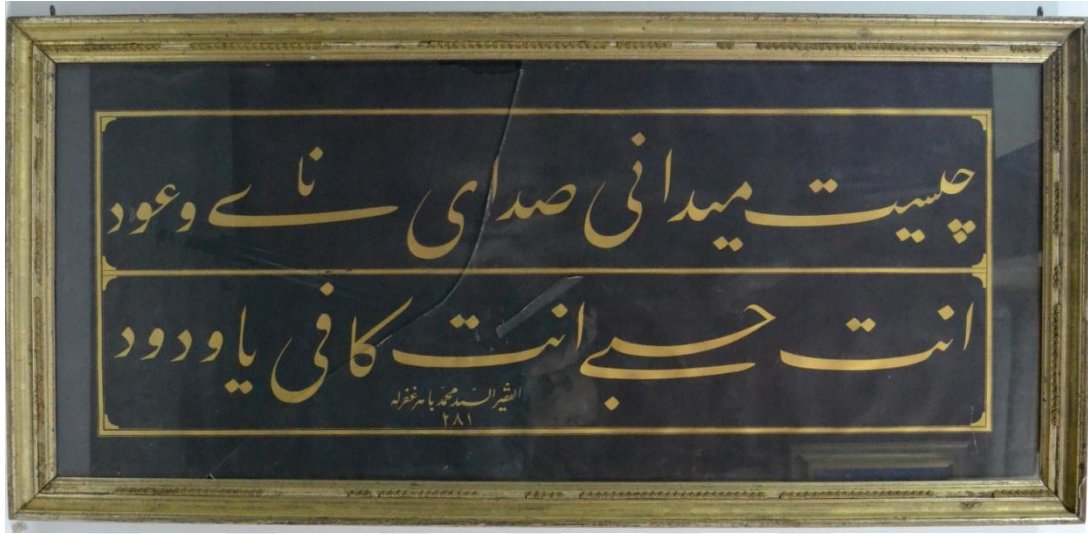 چیست میدانی صدای نے وعود
انت حسبے انت کافی یا ودود
الفقیر السید محمد باهر غفرله
٢٨١